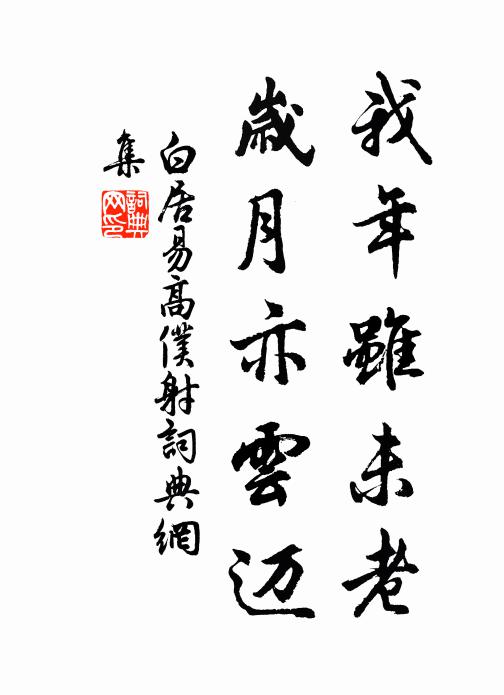 我年雖未老
歲月亦雲迈
白居易高僕射詞典網
集
詞典网印